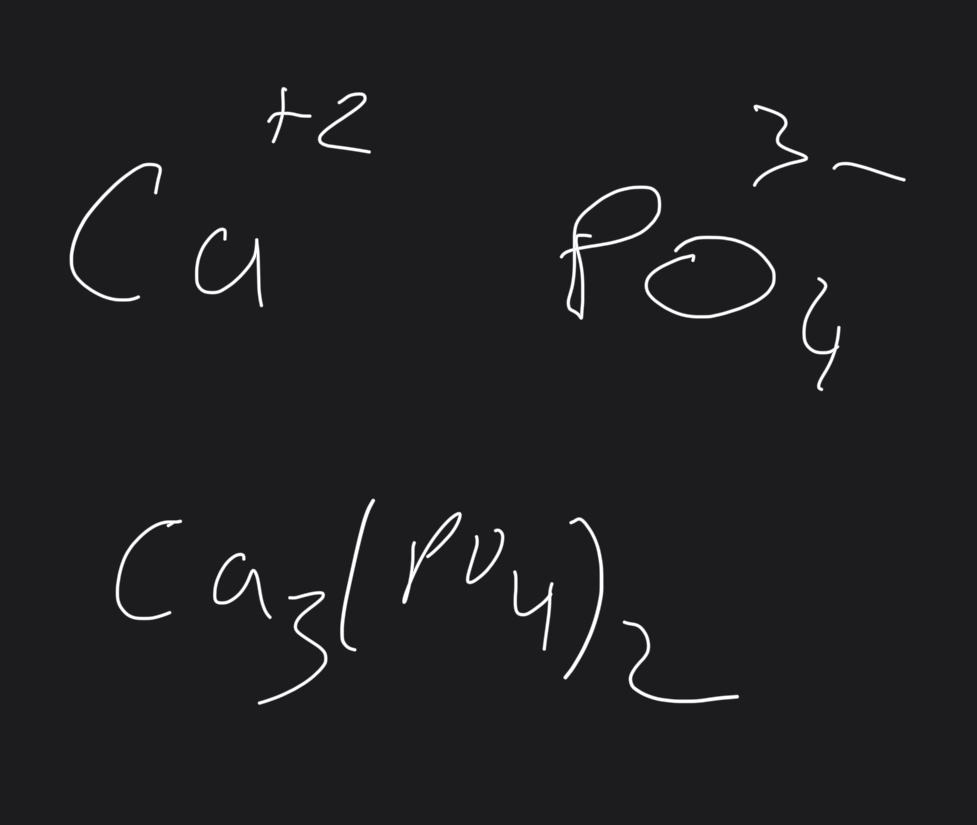 Ca⁺² PO₄³⁻
Ca₃(PO₄)₂